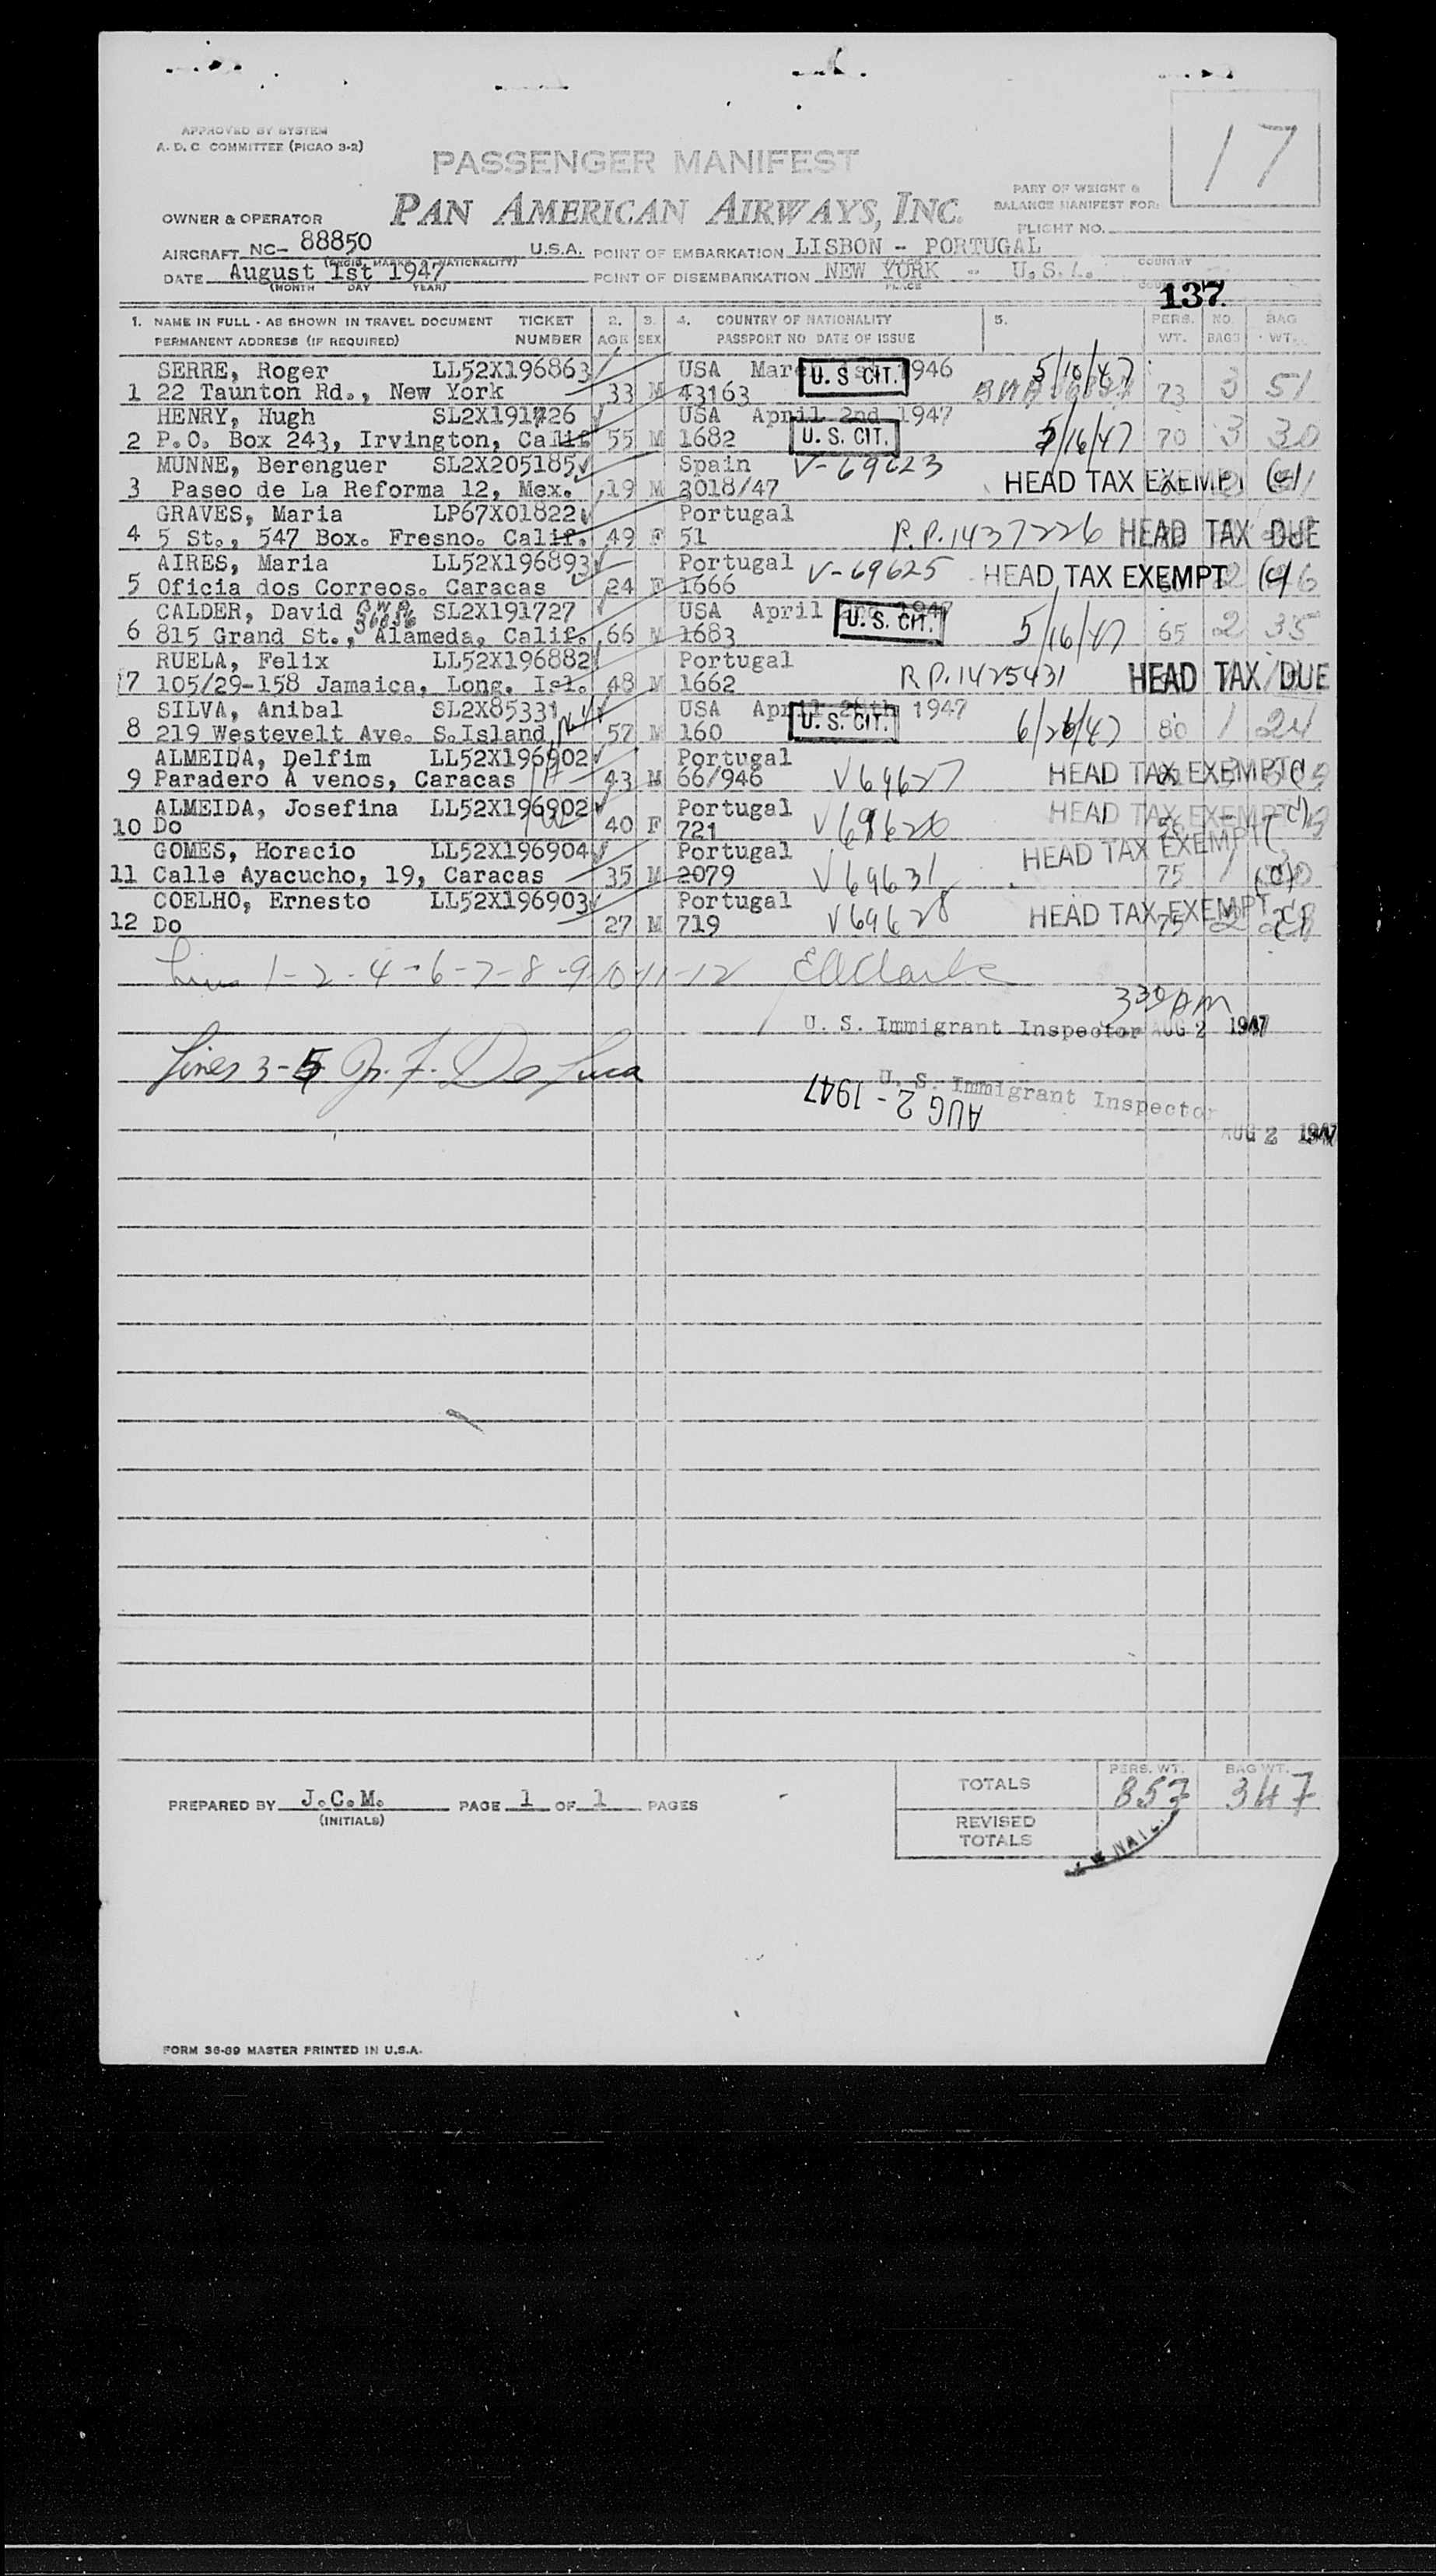 17
APPROVED BY SYSTEM
A. D. C. COMMITTEE (PICAO 3-2)
PASSENGER MANIFEST
PART OF WEIGHT &
BALANCE MANIFEST FOR:
PAN AMERICAN AIRWAYS, INC.
FLIGHT NO.
OWNER & OPERATOR
AIRCRAFT NC- 88850 U.S.A. POINT OF EMBARKATION LISBON - PORTUGAL
(REGIS. MARKS & NATIONALITY) COUNTRY
DATE August 1st 1947 POINT OF DISEMBARKATION NEW YORK - U.S.A.
(MONTH DAY YEAR) PLACE
137
1. NAME IN FULL - AS SHOWN IN TRAVEL DOCUMENT TICKET 2. 3. 4. COUNTRY OF NATIONALITY 5. PERS. NO. BAG
PERMANENT ADDRESS (IF REQUIRED) NUMBER AGE SEX PASSPORT NO DATE OF ISSUE WT. BAGS WT.
SERRE, Roger LL52X196863 USA 1946 U. S. CIT.
1 22 Taunton Rd., New York 33 M 43163 73 3 51
HENRY, Hugh SL2X191726 USA April 2nd 1947
2 P.O. Box 243, Irvington, Calif 55 M 1682 U. S. CIT. 5/16/47 70 3 30
MUNNE, Berenguer SL2X205185 Spain V-69623
3 Paseo de La Reforma 12, Mex. 19 M 2018/47 HEAD TAX EXEMPT (c)
GRAVES, Maria LP67X01822 Portugal
4 5 St., 547 Box. Fresno. Calif. 49 F 51 R.P.1437226 HEAD TAX DUE
AIRES, Maria LL52X196893 Portugal V-69625 HEAD TAX EXEMPT (c)
5 Oficia dos Correos. Caracas 24 F 1666
CALDER, David SL2X191727 USA April 1947 U. S. CIT.
6 815 Grand St., Alameda, Calif. 66 M 1683 5/16/47 65 2 35
RUELA, Felix LL52X196882 Portugal
7 105/29-158 Jamaica, Long. Isl. 48 M 1662 R.P.1425431 HEAD TAX DUE
SILVA, Anibal SL2X85331 USA April 28th 1947
8 219 Westevelt Ave. S.Island 57 M 160 U. S. CIT. 80 1 24
ALMEIDA, Delfim LL52X196902 Portugal
9 Paradero A venos, Caracas 43 M 66/946 V69627 HEAD TAX EXEMPT
ALMEIDA, Josefina LL52X196902 Portugal HEAD TAX EXEMPT
10 Do 40 F 721
GOMES, Horacio LL52X196904 Portugal HEAD TAX EXEMPT
11 Calle Ayacucho, 19, Caracas 35 M 2079 V69631 75 1 (c)
COELHO, Ernesto LL52X196903 Portugal HEAD TAX EXEMPT
12 Do 27 M 719 V69628 75 2
Lines 1-2-4-6-7-8-9-10-11-12
330 PM
U. S. Immigrant Inspector AUG 2 1947
Lines 3-5
U. S. Immigrant Inspector
AUG 2 - 1947
AUG 2 1947
TOTALS PERS. WT. 857 BAG WT. 347
PREPARED BY J.C.M. PAGE 1 OF 1 PAGES
(INITIALS)
REVISED
TOTALS
FORM 36-89 MASTER PRINTED IN U.S.A.